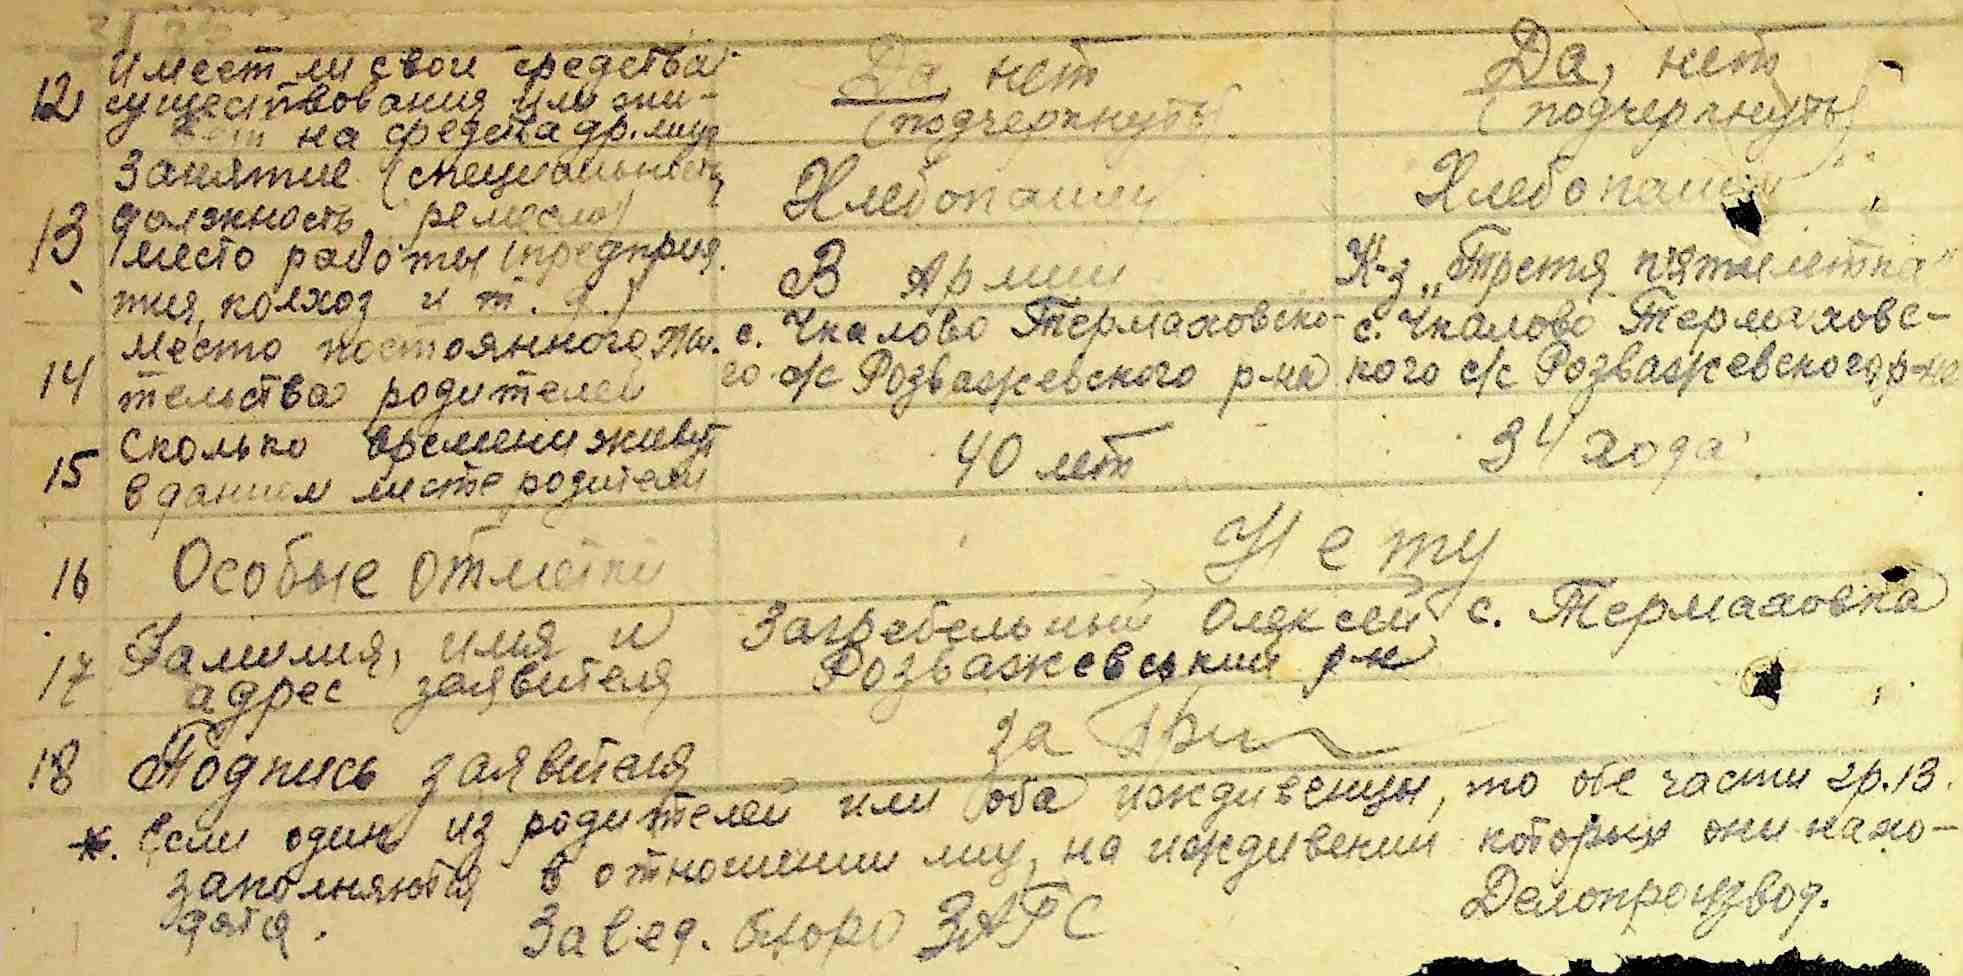 12 Имеет ли свои средства Да, нет Да, нет
существования или жи- (подчеркнуть) (подчеркнуть)
вет на средства др. лиц
Занятие (специальность Хлебопашец Хлебопашец
13 должность, ремесло)
место работы (предприя. В Армии К-з „Третя пятилетка"
тия, колхоз и т. д.)
14 Место постоянного жи. с. Чкалово Термаховско- с. Чкалово Термаховс-
тельства родителей го с/с Розважевского р-на кого с/с Розважевского р-на
15 Сколько времени живут 40 лет 34 хода
в данном месте родители
16 Особые отметки Нету
17 Фамилия, имя и Загребельный Олексей с. Термаховка
адрес заявителя Розважевський р-н
18 Подпись заявителя За
*. Если один из родителей или оба иждивенцы, то обе части гр. 13.
заполняются в отношении лиц, на иждивении которых они нахо-
дятся.
Завед. бюро ЗАГС Делопроизвод.